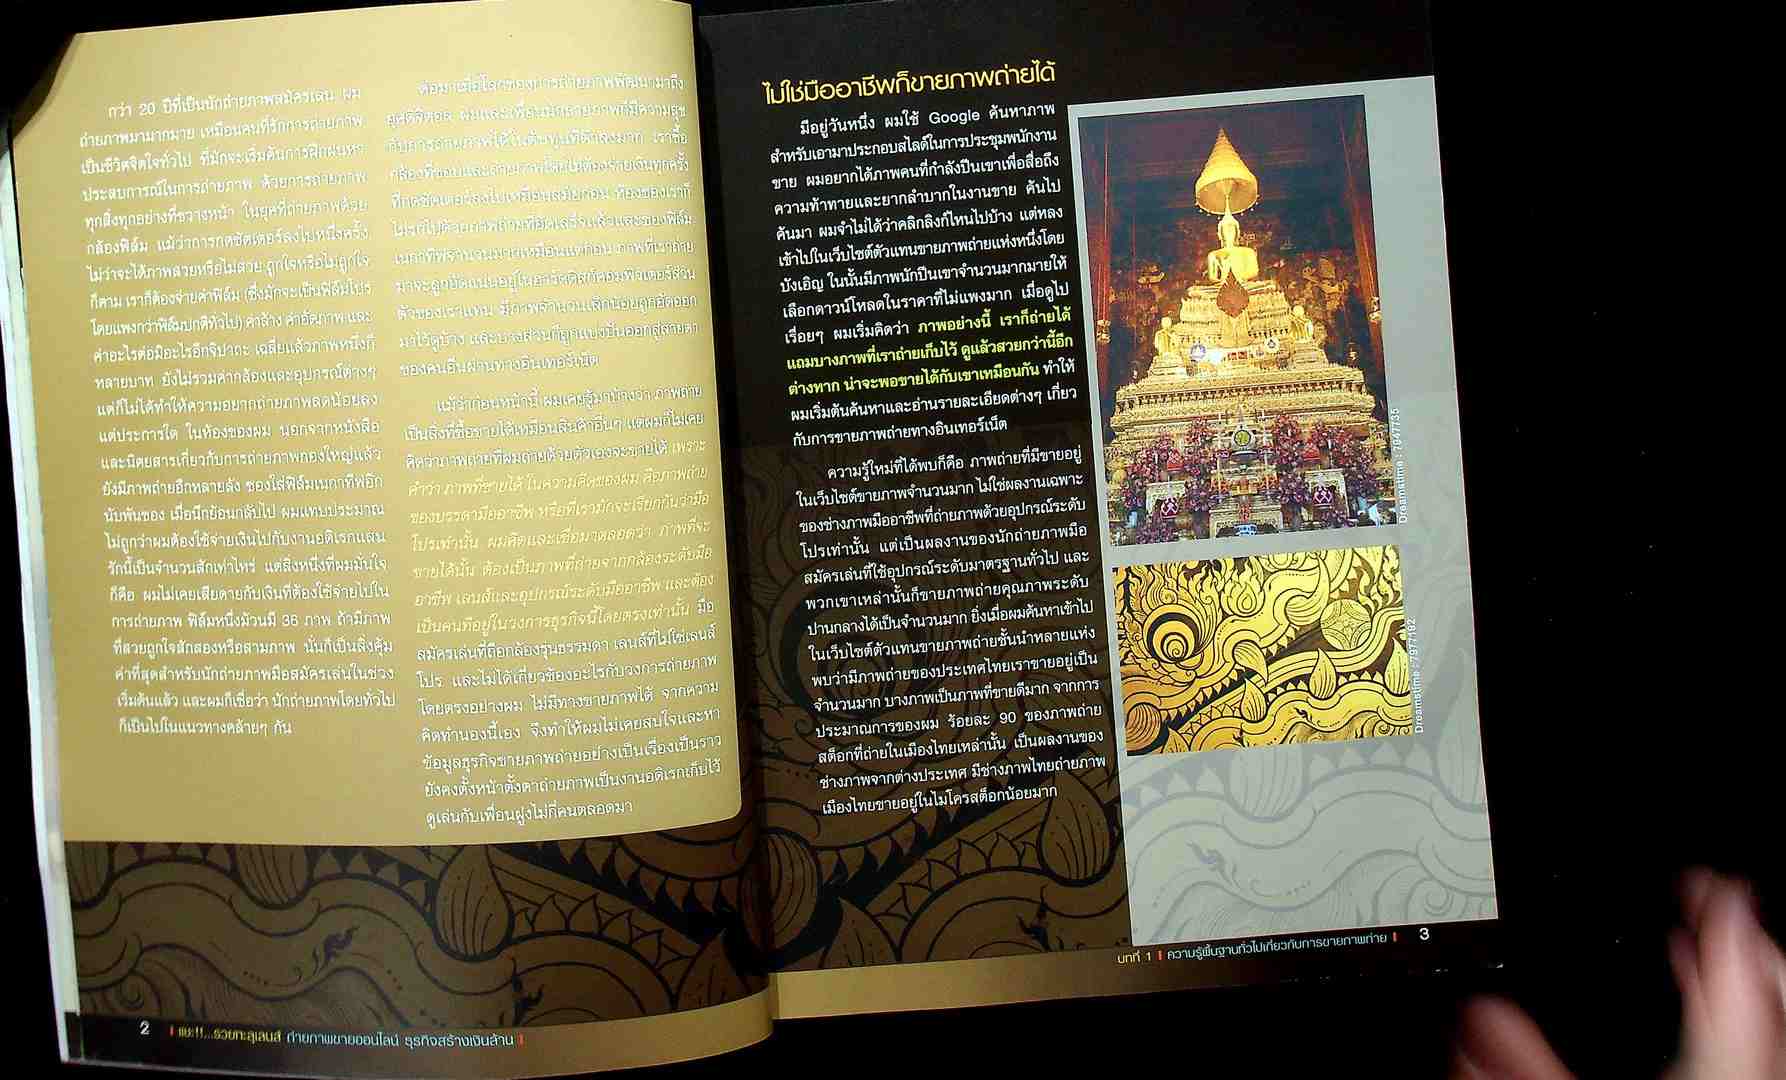 กว่า 20 ปีที่เป็นนักถ่ายภาพสมัครเล่น ผม
ถ่ายภาพมามากมาย เหมือนคนที่รักการถ่ายภาพ
เป็นชีวิตจิตใจทั่วไป ที่มักจะเริ่มต้นการฝึกฝนหา
ประสบการณ์ในการถ่ายภาพ ด้วยการถ่ายภาพ
ทุกสิ่งทุกอย่างที่ขวางหน้า ในยุคที่ถ่ายภาพด้วย
กล้องฟิล์ม แม้ว่าการกดชัตเตอร์ลงไปหนึ่งครั้ง
ไม่ว่าจะได้ภาพสวยหรือไม่สวย ถูกใจหรือไม่ถูกใจ
ก็ตาม เราก็ต้องจ่ายค่าฟิล์ม (ซึ่งมักจะเป็นฟิล์มโปร
โดยแพงกว่าฟิล์มปกติทั่วไป) ค่าล้าง ค่าอัดภาพ และ
ค่าอะไรต่อมิอะไรอีกจิปาถะ เฉลี่ยแล้วภาพหนึ่งก็
หลายบาท ยังไม่รวมค่ากล้องและอุปกรณ์ต่างๆ
แต่ก็ไม่ได้ทำให้ความอยากถ่ายภาพลดน้อยลง
แต่ประการใด ในห้องของผม นอกจากหนังสือ
และนิตยสารเกี่ยวกับการถ่ายภาพกองใหญ่แล้ว
ยังมีภาพถ่ายอีกหลายลัง ซองใส่ฟิล์มเนกาทีฟอีก
นับพันซอง เมื่อนึกย้อนกลับไป ผมแทบประมาณ
ไม่ถูกว่าผมต้องใช้จ่ายเงินไปกับงานอดิเรกแสน
รักนี้เป็นจำนวนสักเท่าไหร่ แต่สิ่งหนึ่งที่ผมมั่นใจ
ก็คือ ผมไม่เคยเสียดายกับเงินที่ต้องใช้จ่ายไปใน
การถ่ายภาพ ฟิล์มหนึ่งม้วนมี 36 ภาพ ถ้ามีภาพ
ที่สวยถูกใจสักสองหรือสามภาพ นั่นก็เป็นสิ่งคุ้ม
ค่าที่สุดสำหรับนักถ่ายภาพมือสมัครเล่นในช่วง
เริ่มต้นแล้ว และผมก็เชื่อว่า นักถ่ายภาพโดยทั่วไป
ก็เป็นไปในแนวทางคล้ายๆ กัน
ต่อมาเมื่อโลกของการถ่ายภาพพัฒนามาถึง
ยุคดิจิตอล ผมและเพื่อนนักถ่ายภาพก็มีความสุข
กับการถ่ายภาพได้ในต้นทุนที่ต่ำลงมาก เราซื้อ
กล้องที่ชอบและถ่ายภาพโดยไม่ต้องจ่ายเงินทุกครั้ง
ที่กดชัตเตอร์ลงไปเหมือนสมัยก่อน ห้องของเราก็
ไม่รกไปด้วยภาพถ่ายที่อัดเสร็จแล้วและซองฟิล์ม
เนกาทีฟจำนวนมากเหมือนแต่ก่อน ภาพที่เราถ่าย
มาจะถูกยัดแน่นอยู่ในฮาร์ดดิสก์คอมพิวเตอร์ส่วน
ตัวของเราแทน มีภาพจำนวนเล็กน้อยถูกอัดออก
มาไว้ดูบ้าง และบางส่วนก็ถูกแบ่งปันออกสู่สายตา
ของคนอื่นผ่านทางอินเทอร์เน็ต
แม้ว่าก่อนหน้านี้ ผมเคยรู้มาบ้างว่า ภาพถ่าย
เป็นสิ่งที่ซื้อขายได้เหมือนสินค้าอื่นๆ แต่ผมก็ไม่เคย
คิดว่าภาพถ่ายที่ผมถ่ายด้วยตัวเองจะขายได้ เพราะ
คำว่า ภาพที่ขายได้ ในความคิดของผม คือภาพถ่าย
ของบรรดามืออาชีพ หรือที่เรามักจะเรียกกันว่ามือ
โปรเท่านั้น ผมคิดและเชื่อมาตลอดว่า ภาพที่จะ
ขายได้นั้น ต้องเป็นภาพที่ถ่ายจากกล้องระดับมือ
อาชีพ เลนส์และอุปกรณ์ระดับมืออาชีพ และต้อง
เป็นคนที่อยู่ในวงการธุรกิจนี้โดยตรงเท่านั้น มือ
สมัครเล่นที่ถือกล้องรุ่นธรรมดา เลนส์ที่ไม่ใช่เลนส์
โปร และไม่ได้เกี่ยวข้องอะไรกับวงการถ่ายภาพ
โดยตรงอย่างผม ไม่มีทางขายภาพได้ จากความ
คิดทำนองนี้เอง จึงทำให้ผมไม่เคยสนใจและหา
ข้อมูลธุรกิจขายภาพถ่ายอย่างเป็นเรื่องเป็นราว
ยังคงตั้งหน้าตั้งตาถ่ายภาพเป็นงานอดิเรกเก็บไว้
ดูเล่นกับเพื่อนฝูงไม่กี่คนตลอดมา
2 | แชะ!!...รวยทะลุเลนส์ ถ่ายภาพขายออนไลน์ ธุรกิจสร้างเงินล้าน |
ไม่ใช่มืออาชีพก็ขายภาพถ่ายได้
มีอยู่วันหนึ่ง ผมใช้ Google ค้นหาภาพ
สำหรับเอามาประกอบสไลด์ในการประชุมพนักงาน
ขาย ผมอยากได้ภาพคนที่กำลังปีนเขาเพื่อสื่อถึง
ความท้าทายและยากลำบากในงานขาย ค้นไป
ค้นมา ผมจำไม่ได้ว่าคลิกลิงก์ไหนไปบ้าง แต่หลง
เข้าไปในเว็บไซต์ตัวแทนขายภาพถ่ายแห่งหนึ่งโดย
บังเอิญ ในนั้นมีภาพนักปีนเขาจำนวนมากมายให้
เลือกดาวน์โหลดในราคาที่ไม่แพงมาก เมื่อดูไป
เรื่อยๆ ผมเริ่มคิดว่า ภาพอย่างนี้ เราก็ถ่ายได้
แถมบางภาพที่เราถ่ายเก็บไว้ ดูแล้วสวยกว่านี้อีก
ต่างหาก น่าจะพอขายได้กับเขาเหมือนกัน ทำให้
ผมเริ่มต้นค้นหาและอ่านรายละเอียดต่างๆ เกี่ยว
กับการขายภาพถ่ายทางอินเทอร์เน็ต
ความรู้ใหม่ที่ได้พบก็คือ ภาพถ่ายที่มีขายอยู่
ในเว็บไซต์ขายภาพจำนวนมาก ไม่ใช่ผลงานเฉพาะ
ของช่างภาพมืออาชีพที่ถ่ายภาพด้วยอุปกรณ์ระดับ
โปรเท่านั้น แต่เป็นผลงานของนักถ่ายภาพมือ
สมัครเล่นที่ใช้อุปกรณ์ระดับมาตรฐานทั่วไป และ
พวกเขาเหล่านั้นก็ขายภาพถ่ายคุณภาพระดับ
ปานกลางได้เป็นจำนวนมาก ยิ่งเมื่อผมค้นหาเข้าไป
ในเว็บไซต์ตัวแทนขายภาพถ่ายชั้นนำหลายแห่ง
พบว่ามีภาพถ่ายของประเทศไทยเราขายอยู่เป็น
จำนวนมาก บางภาพเป็นภาพที่ขายดีมาก จากการ
ประมาณการของผม ร้อยละ 90 ของภาพถ่าย
สต็อกที่ถ่ายในเมืองไทยเหล่านั้น เป็นผลงานของ
ช่างภาพจากต่างประเทศ มีช่างภาพไทยถ่ายภาพ
เมืองไทยขายอยู่ในไมโครสต็อกน้อยมาก
Dreamstime : 7947735
Dreamstime : 7977192
บทที่ 1 | ความรู้พื้นฐานทั่วไปเกี่ยวกับการขายภาพถ่าย | 3